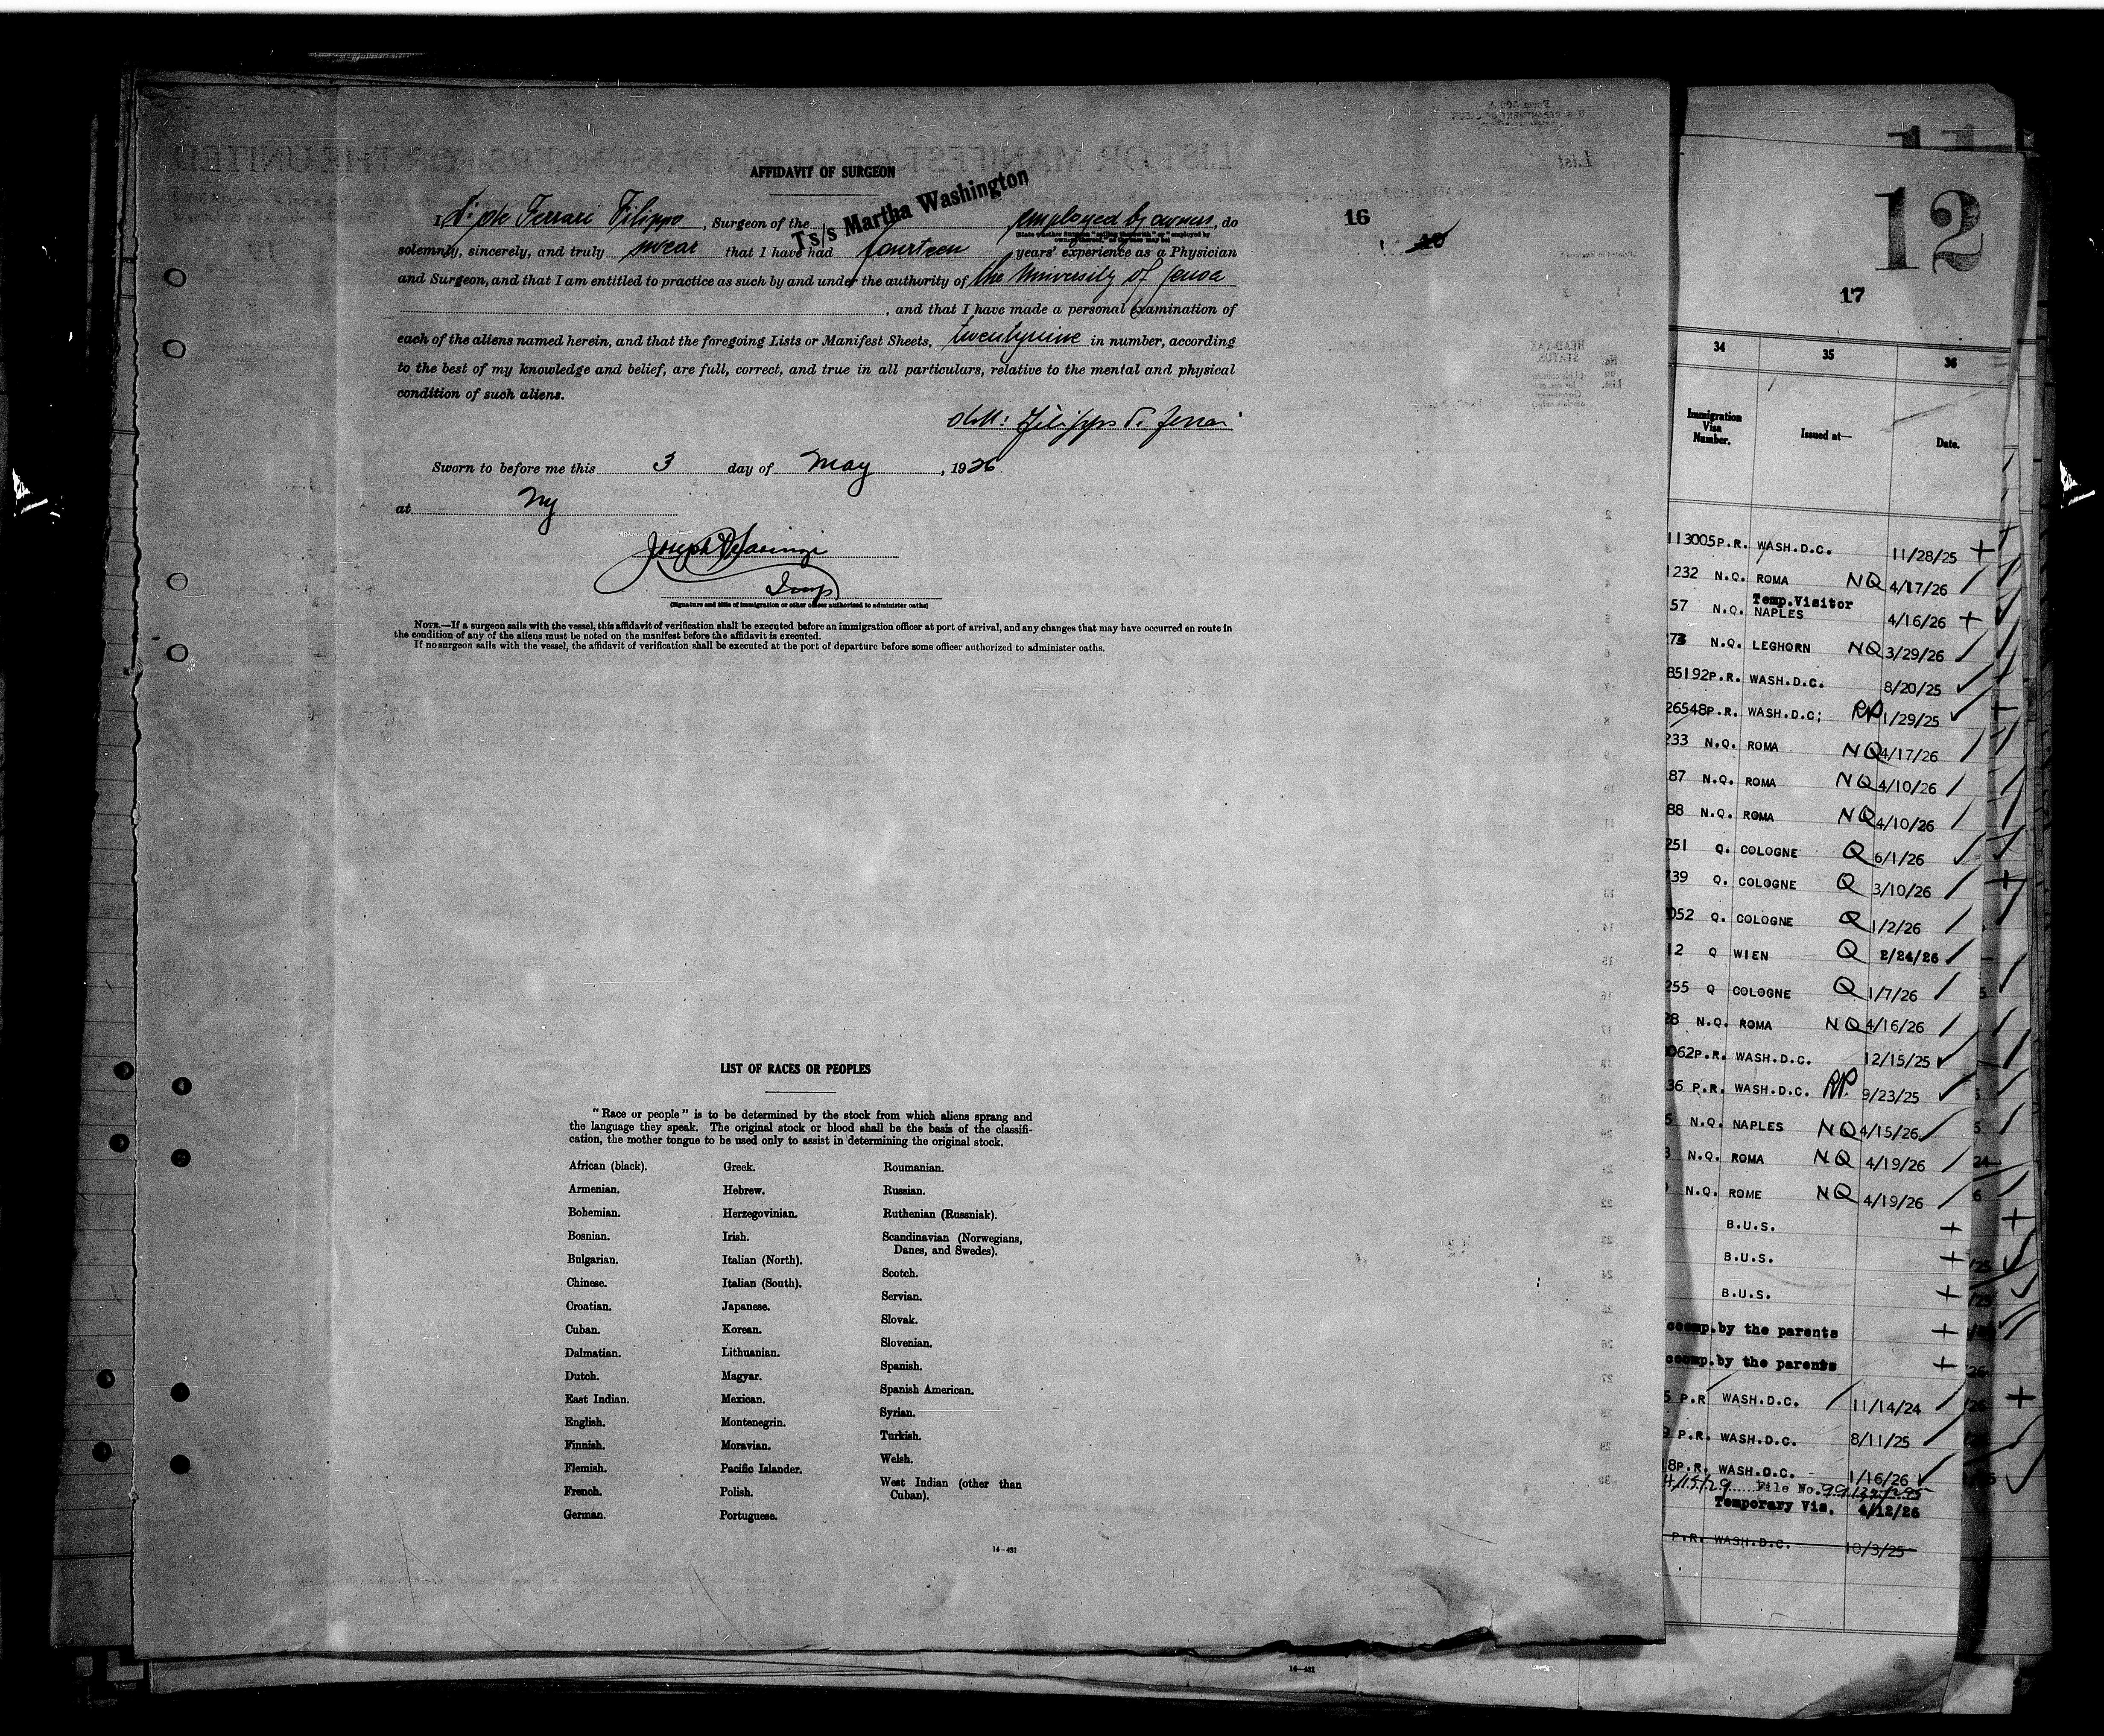 AFFIDAVIT OF SURGEON
I, Ferrari Filippo, Surgeon of the Ts/s Martha Washington employed by owners, do
solemnly, sincerely, and truly swear that I have had fourteen years' experience as a Physician
and Surgeon, and that I am entitled to practice as such by and under the authority of the University of Genoa
, and that I have made a personal examination of
each of the aliens named herein, and that the foregoing Lists or Manifest Sheets, twentynine in number, according
to the best of my knowledge and belief, are full, correct, and true in all particulars, relative to the mental and physical
condition of such aliens.
Sworn to before me this 3 day of May, 1926.
at Ny
Insp
(Signature and title of immigration or other officer authorized to administer oaths)
NOTE.—If a surgeon sails with the vessel, this affidavit of verification shall be executed before an immigration officer at port of arrival, and any changes that may have occurred en route in
the condition of any of the aliens must be noted on the manifest before the affidavit is executed.
If no surgeon sails with the vessel, the affidavit of verification shall be executed at the port of departure before some officer authorized to administer oaths.
16
LIST OF RACES OR PEOPLES
"Race or people" is to be determined by the stock from which aliens sprang and
the language they speak. The original stock or blood shall be the basis of the classifi-
cation, the mother tongue to be used only to assist in determining the original stock.
African (black).
Armenian.
Bohemian.
Bosnian.
Bulgarian.
Chinese.
Croatian.
Cuban.
Dalmatian.
Dutch.
East Indian.
English.
Finnish.
Flemish.
French.
German.
Greek.
Hebrew.
Herzegovinian.
Irish.
Italian (North).
Italian (South).
Japanese.
Korean.
Lithuanian.
Magyar.
Mexican.
Montenegrin.
Moravian.
Pacific Islander.
Polish.
Portuguese.
Roumanian.
Russian.
Ruthenian (Russniak).
Scandinavian (Norwegians,
Danes, and Swedes).
Scotch.
Servian.
Slovak.
Slovenian.
Spanish.
Spanish American.
Syrian.
Turkish.
Welsh.
West Indian (other than
Cuban).
14—431
12
17
34 35 36
Immigration
Visa
Number.
Issued at—
Date.
113005 P.R. WASH.D.C. 11/28/25
232 N.Q. ROMA NQ 4/17/26
Temp.Visitor
57 N.Q. NAPLES 4/16/26
73 N.Q. LEGHORN NQ 3/29/26
85192 P.R. WASH.D.C. 8/20/25
26548 P.R. WASH.D.C; RP 1/29/25
233 N.Q. ROMA NQ 4/17/26
87 N.Q. ROMA NQ 4/10/26
88 N.Q. ROMA NQ 4/10/26
251 Q. COLOGNE Q 6/1/26
739 Q. COLOGNE Q 3/10/26
052 Q. COLOGNE Q 1/2/26
12 Q WIEN Q 2/24/26
255 Q COLOGNE Q 1/7/26
28 N.Q. ROMA NQ 4/16/26
062 P.R. WASH.D.C. 12/15/25
36 P.R. WASH.D.C. RP. 9/23/25
N.Q. NAPLES NQ 4/15/26
N.Q. ROMA NQ 4/19/26
N.Q. ROME NQ 4/19/26
B.U.S.
B.U.S.
B.U.S.
ccomp.by the parents
ccomp.by the parents
5 P.R WASH.D.C. 11/14/24
P.R. WASH.D.C. 8/11/25
8 P.R. WASH.D.C. 1/16/26
4/15/29 File No.
Temporary Vis. 4/12/26
P.R. WASH.D.C. 10/3/25
14—431